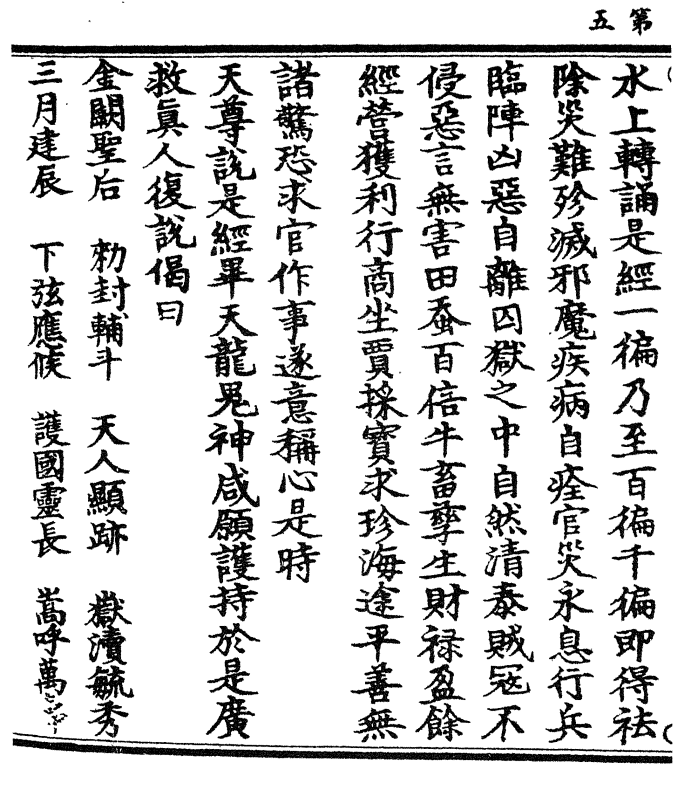 第五
水上轉誦是經一徧乃至百徧千徧即得祛
除災難殄滅邪魔疾病自痊官災永息行兵
臨陣凶惡自離囚獄之中自然清泰賊寇不
侵惡言無害田蚕百倍牛畜孳生財祿盈餘
經營獲利行商坐賈採寶求珍海途平善無
諸驚恐求官作事遂意稱心是時
天尊說是經畢天龍鬼神咸願護持於是廣
救眞人復說偈曰
金闕聖后 勑封輔斗 天人顯跡 嶽瀆毓秀
三月建辰 下弦應候 護國靈長 嵩呼萬